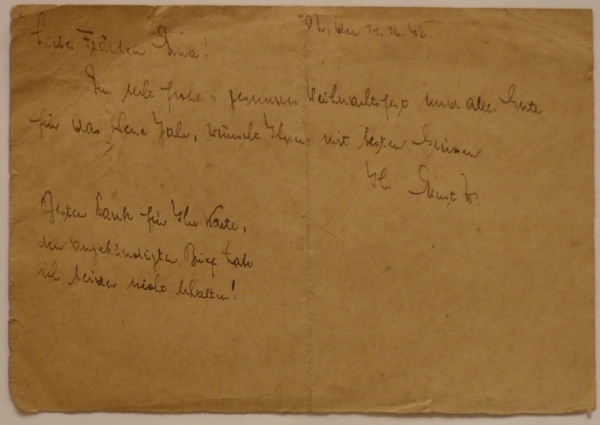 den 14. 12. 42
Liebes Fräulein Erna!
Ein recht frohes, gesundes Weihnachtsfest und alles Gute
für das Neue Jahr, wünscht Ihnen mit besten Grüssen
Ihr Ernst
Besten Dank für Ihre Karte,
den angekündigten Brief habe
ich leider nicht erhalten!